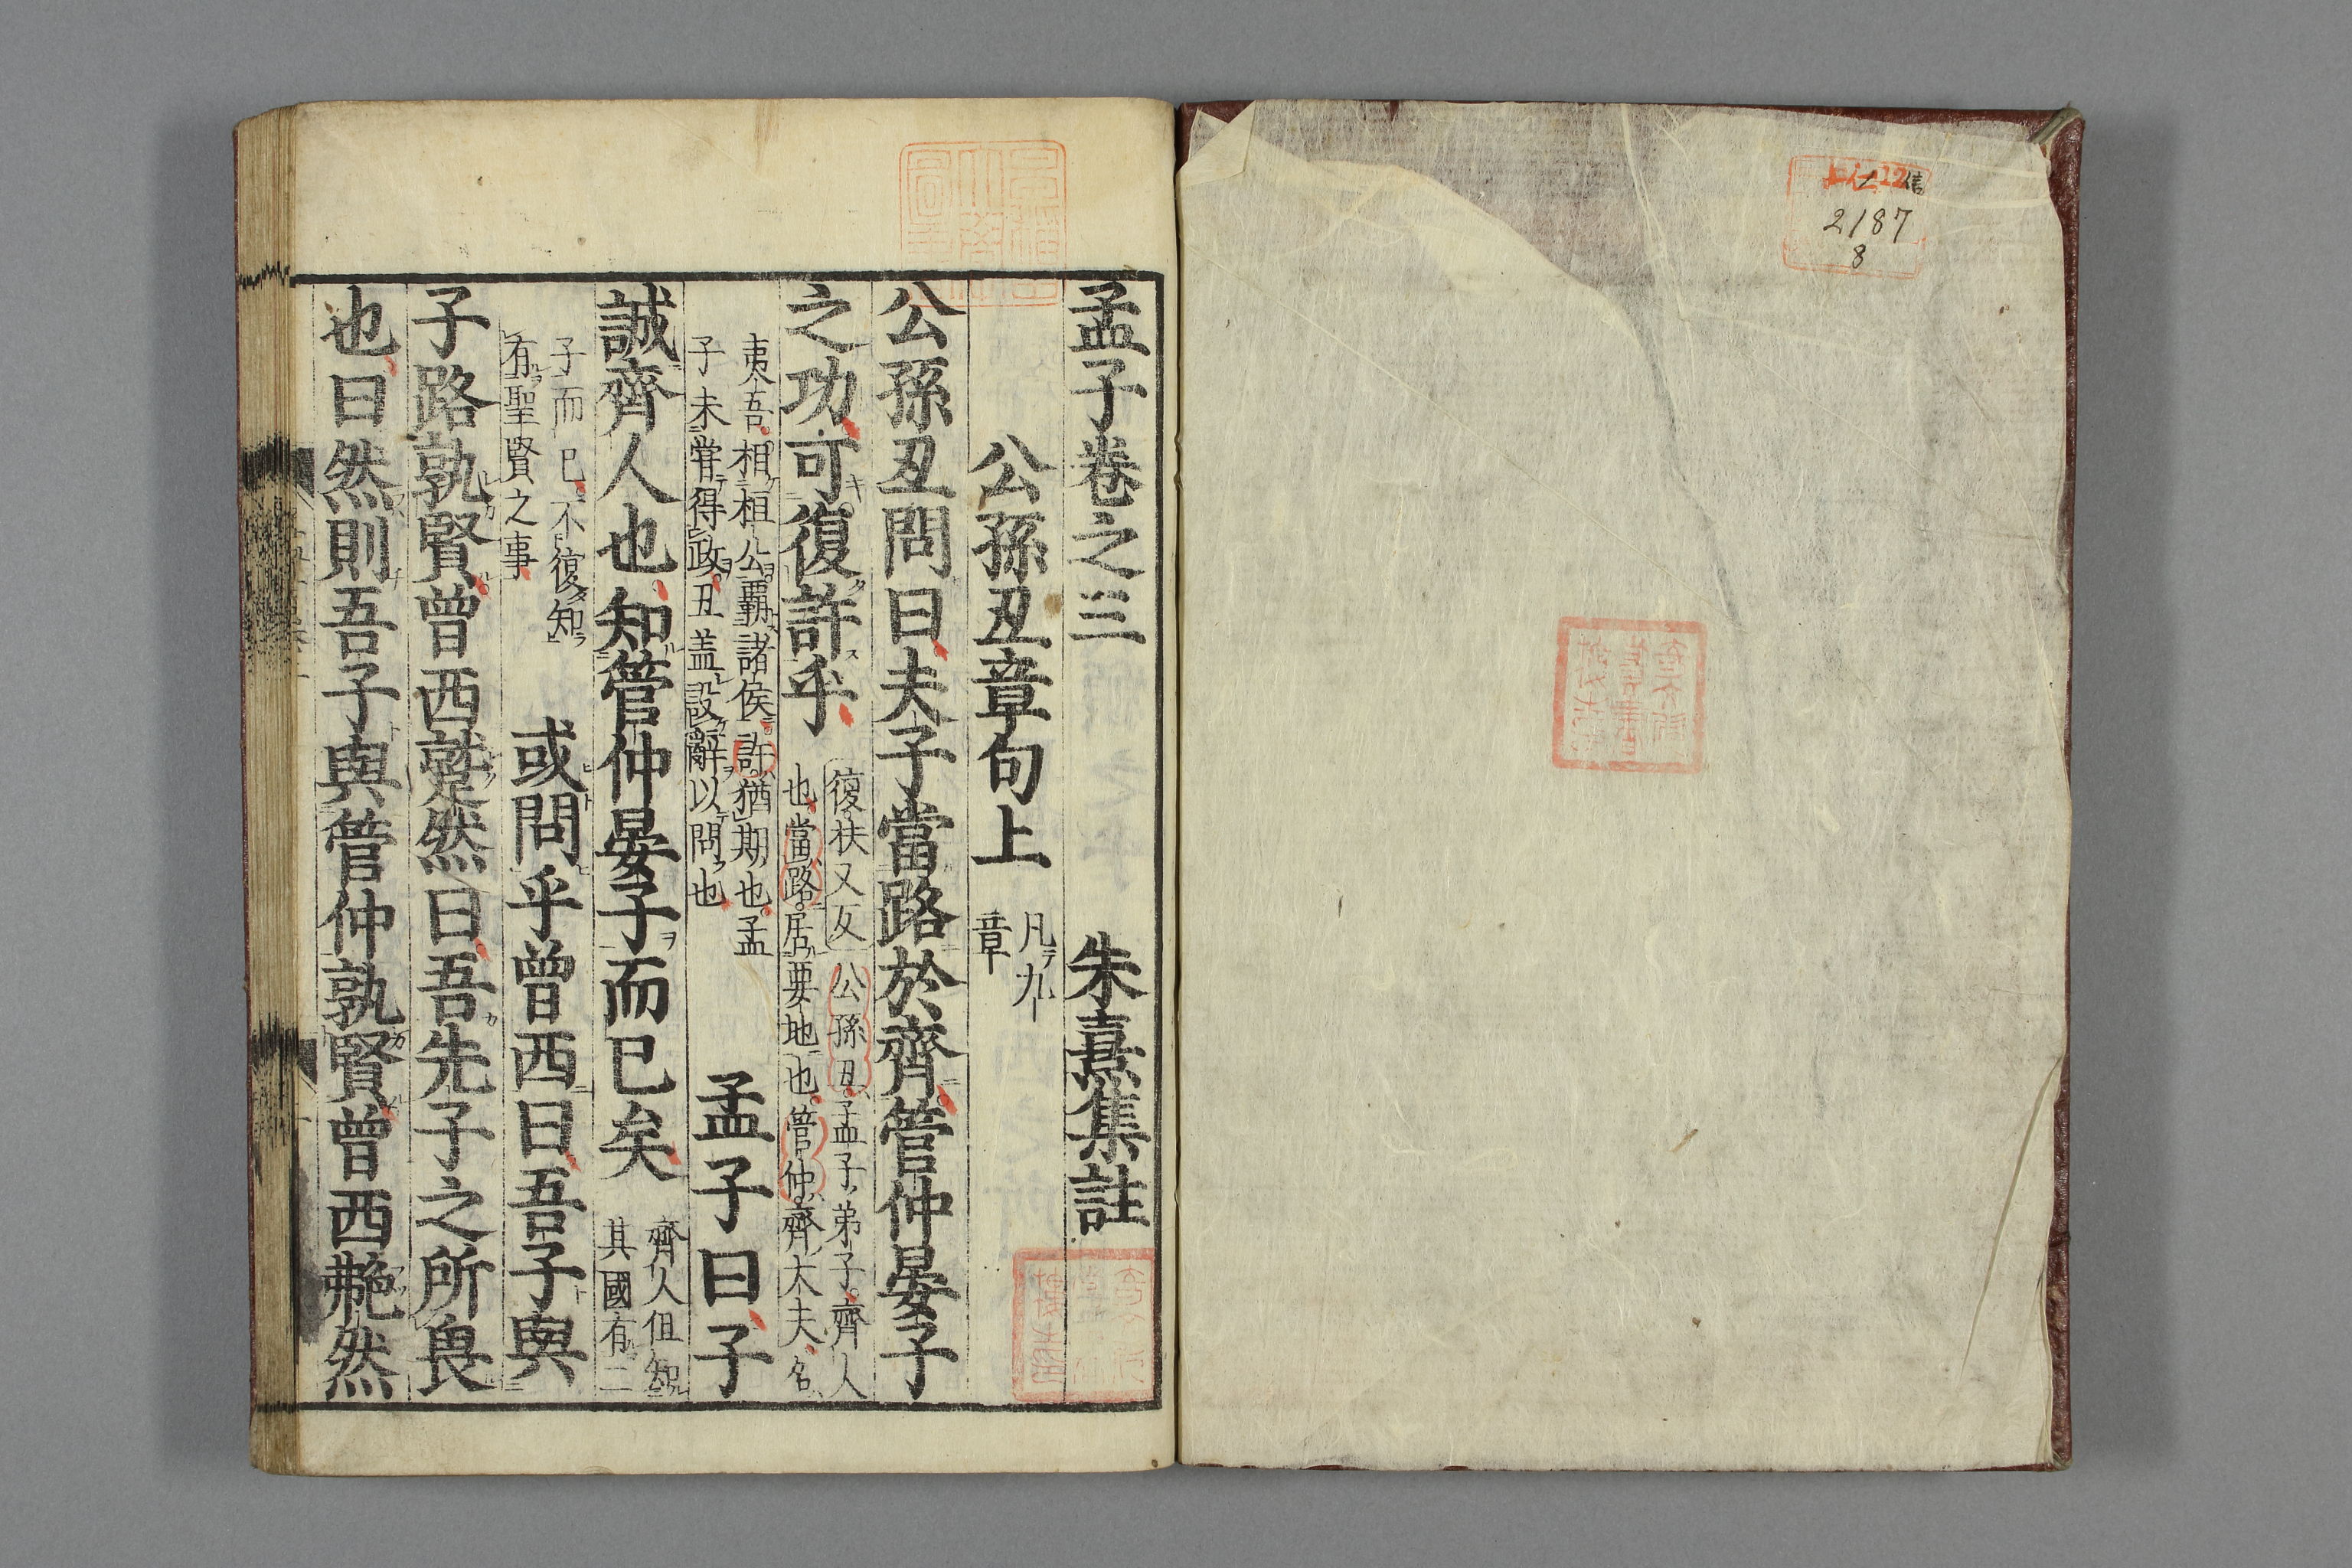 信
2187
8
孟子卷之三 朱熹集註
公孫丑章句上 凡九
章
公孫丑問曰夫子當路於齊管仲晏子
之功可復許乎 復扶又反 公孫丑孟子弟子齊人
也當路居要地也管仲齊大夫名
夷吾相桓公霸諸侯許猶期也孟
子未嘗得政丑蓋設辭以問也
孟子曰子
誠齊人也知管仲晏子而已矣 齊人但知
其國有二
子而已不復知
有聖賢之事
或問乎曾西曰吾子與
子路孰賢曾西蹵然曰吾先子之所畏
也曰然則吾子與管仲孰賢曾西艴然